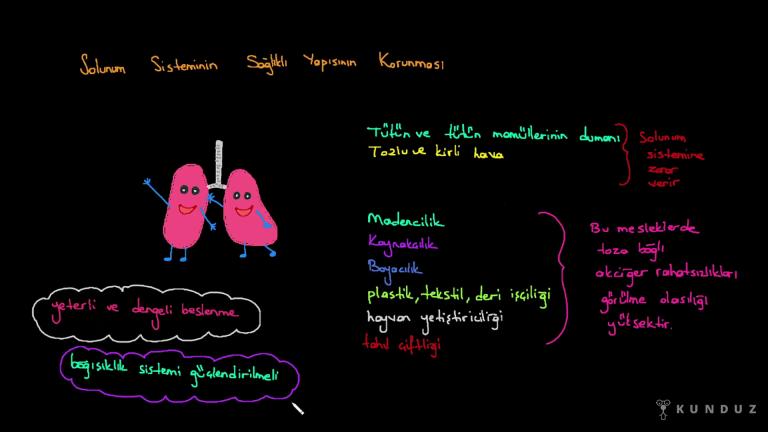 Solunum Sisteminin Sağlıklı Yapısının Korunması
Tütün ve tütün mamüllerinin dumanı
Tozlu ve kirli hava
Solunum
sistemine
zarar
verir
Madencilik
Kaynakcılık
Boyacılık
plastik, tekstil, deri işçiliği
hayvan yetiştiriciliği
tahıl çiftliği
Bu mesleklerde
toza bağlı
akciğer rahatsızlıkları
görülme olasılığı
yüksektir.
yeterli ve dengeli beslenme
bağışıklık sistemi güçlendirilmeli
KUNDUZ